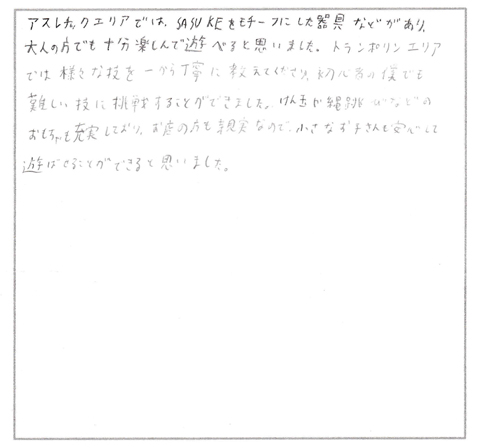 アスレチックエリアでは、SASUKEをモチーフにした器具などがあり、
大人の方でも十分楽しんで遊べると思いました。トランポリンエリア
では様々な技を一から丁寧に教えてくださり、初心者の僕でも
難しい技に挑戦することができました。けん玉や縄跳びなどの
おもちゃも充実しており、お店の方も親切なので、小さなお子さんも安心して
遊ばせることができると思いました。